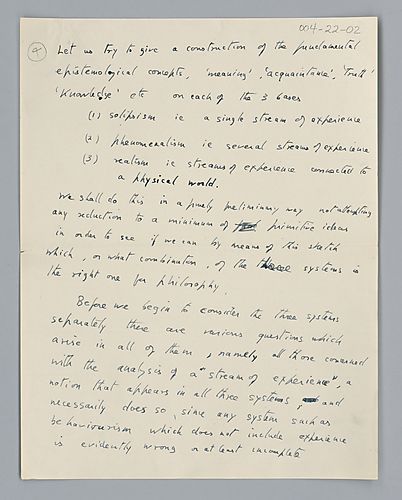 004-22-02
(1)
Let us try to give a construction of the fundamental
epistemological concepts, 'meaning', 'acquaintance', 'truth'
'Knowledge' etc on each of the 3 bases
(1) solipsism ie a single stream of experience
(2) phenomenalism ie several streams of experience
(3) realism ie streams of experience connected to
a physical world.
We shall do this in a purely preliminary way not attempting
any reduction to a minimum of primitive ideas
in order to see if we can by means of this sketch
which, or what combination, of the three systems is
the right one for philosophy.
Before we begin to consider the three systems
separately there are various questions which
arise in all of them, namely all those concerned
with the analysis of a "stream of experience", a
notion that appears in all three systems, and
necessarily does so, since any system such as
behaviourism which does not include experience
is evidently wrong or at least incomplete